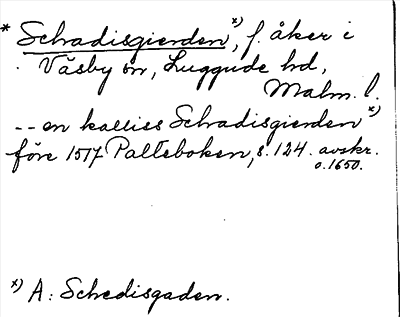 * Schadisgierden *), f. åker i
Väsby sn, Luggude hd,
Malm. l.
-- en kallies Schadisgierden *)
före 1517 Palteboken, s. 124. avskr.
o. 1650.
*) A: Schedisgaden.